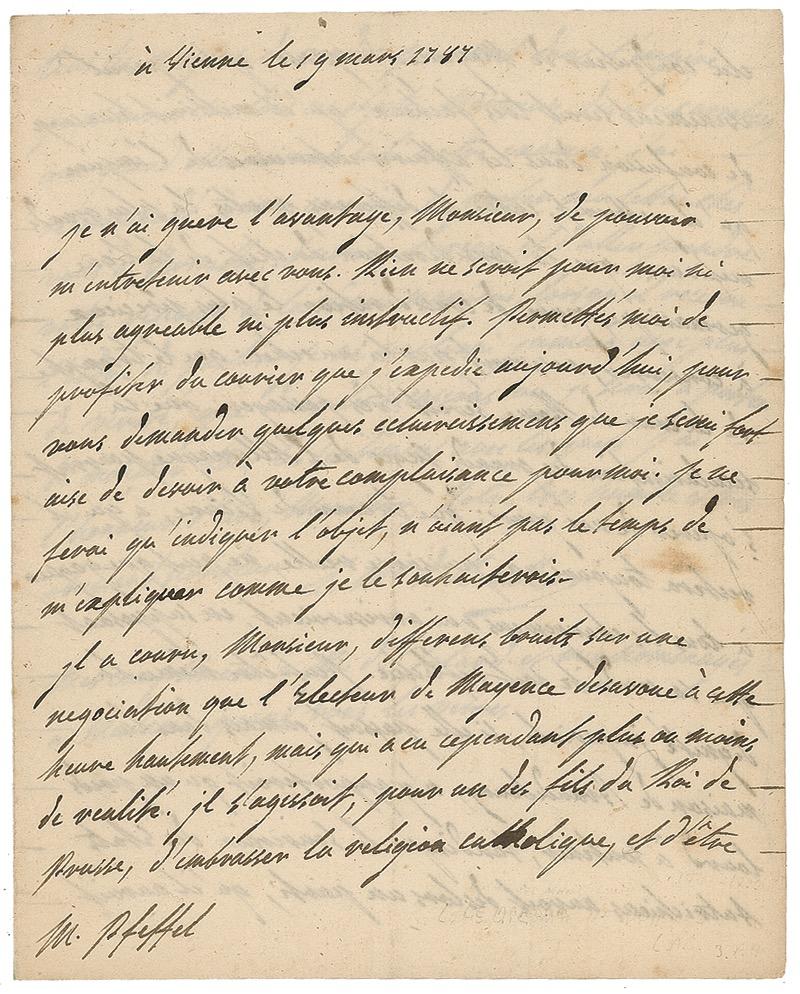 à Vienne le 19 mars 1787
je n'ai guere l'avantage, Monsieur, de pouvoir
m'entretenir avec vous. Rien ne seroit pour moi ni
plus agreable ni plus instructif. Permettés moi de
profiter du courier que j'expedie aujourd'hui, pour
vous demander quelques eclaircissemens que je serai fort
aise de devoir à votre complaisance pour moi. je ne
ferai qu'indiquer l'objet, n'aiant pas le temps de
m'expliquer comme je le souhaiterois.
jl a couru, Monsieur, differens bruits sur une
negociation que l'Electeur de Mayence desavoue à cette
heure hautement, mais qui a eu cependant plus ou moins
de realité. jl s'agissoit, pour un des fils du Roi de
Prusse, d'embrasser la religion catholique, et d'être
M. Pfeffel